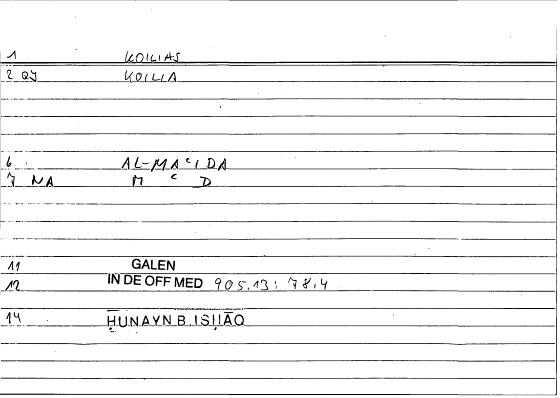 1 KOILIAS
2 QY KOILIA
6 AL-MAᶜIDA
7 NA M ᶜ D
11 GALEN
12 IN DE OFF MED 905.13: 78.4
14 ḤUNAYN B. ISḤĀQ